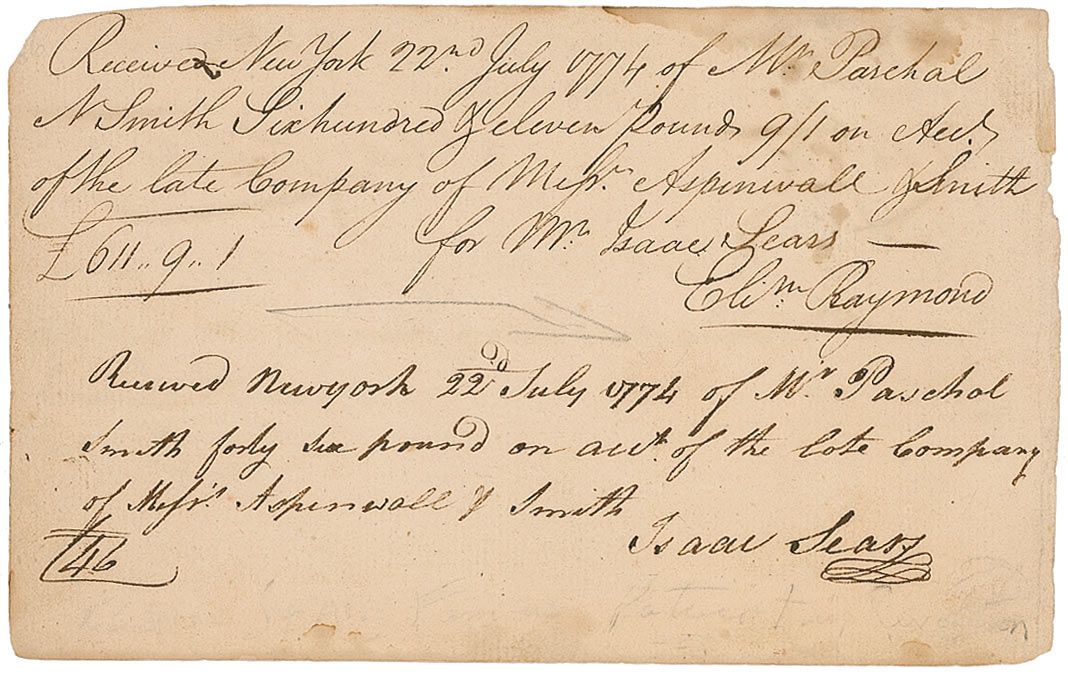 Received New York 22nd July 1774 of Mr Paschal
N Smith Six hundred & eleven Pounds 9/1 on Acct
of the late Company of Messrs Aspinwall & Smith
£611.. 9.. 1 for Mr Isaac Sears —
Raymond
Received Newyork 22d July 1774 of Mr Paschal
Smith forty six pound on acct. of the late Company
of Messrs Aspinwall & Smith
£46 Isaac Sears